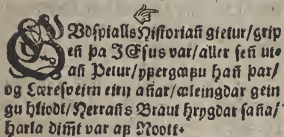 GUdspialls Historiañ gietur/grip
eñ þa JEsus var/aller señ ut-
añ Petur/yppergaپu hañ þar/
og Læresveirn eirn añar/æleingdar gein
gu hliodt/Herrañs Braut hrygdar saña/
harla dimt var ap Noott.